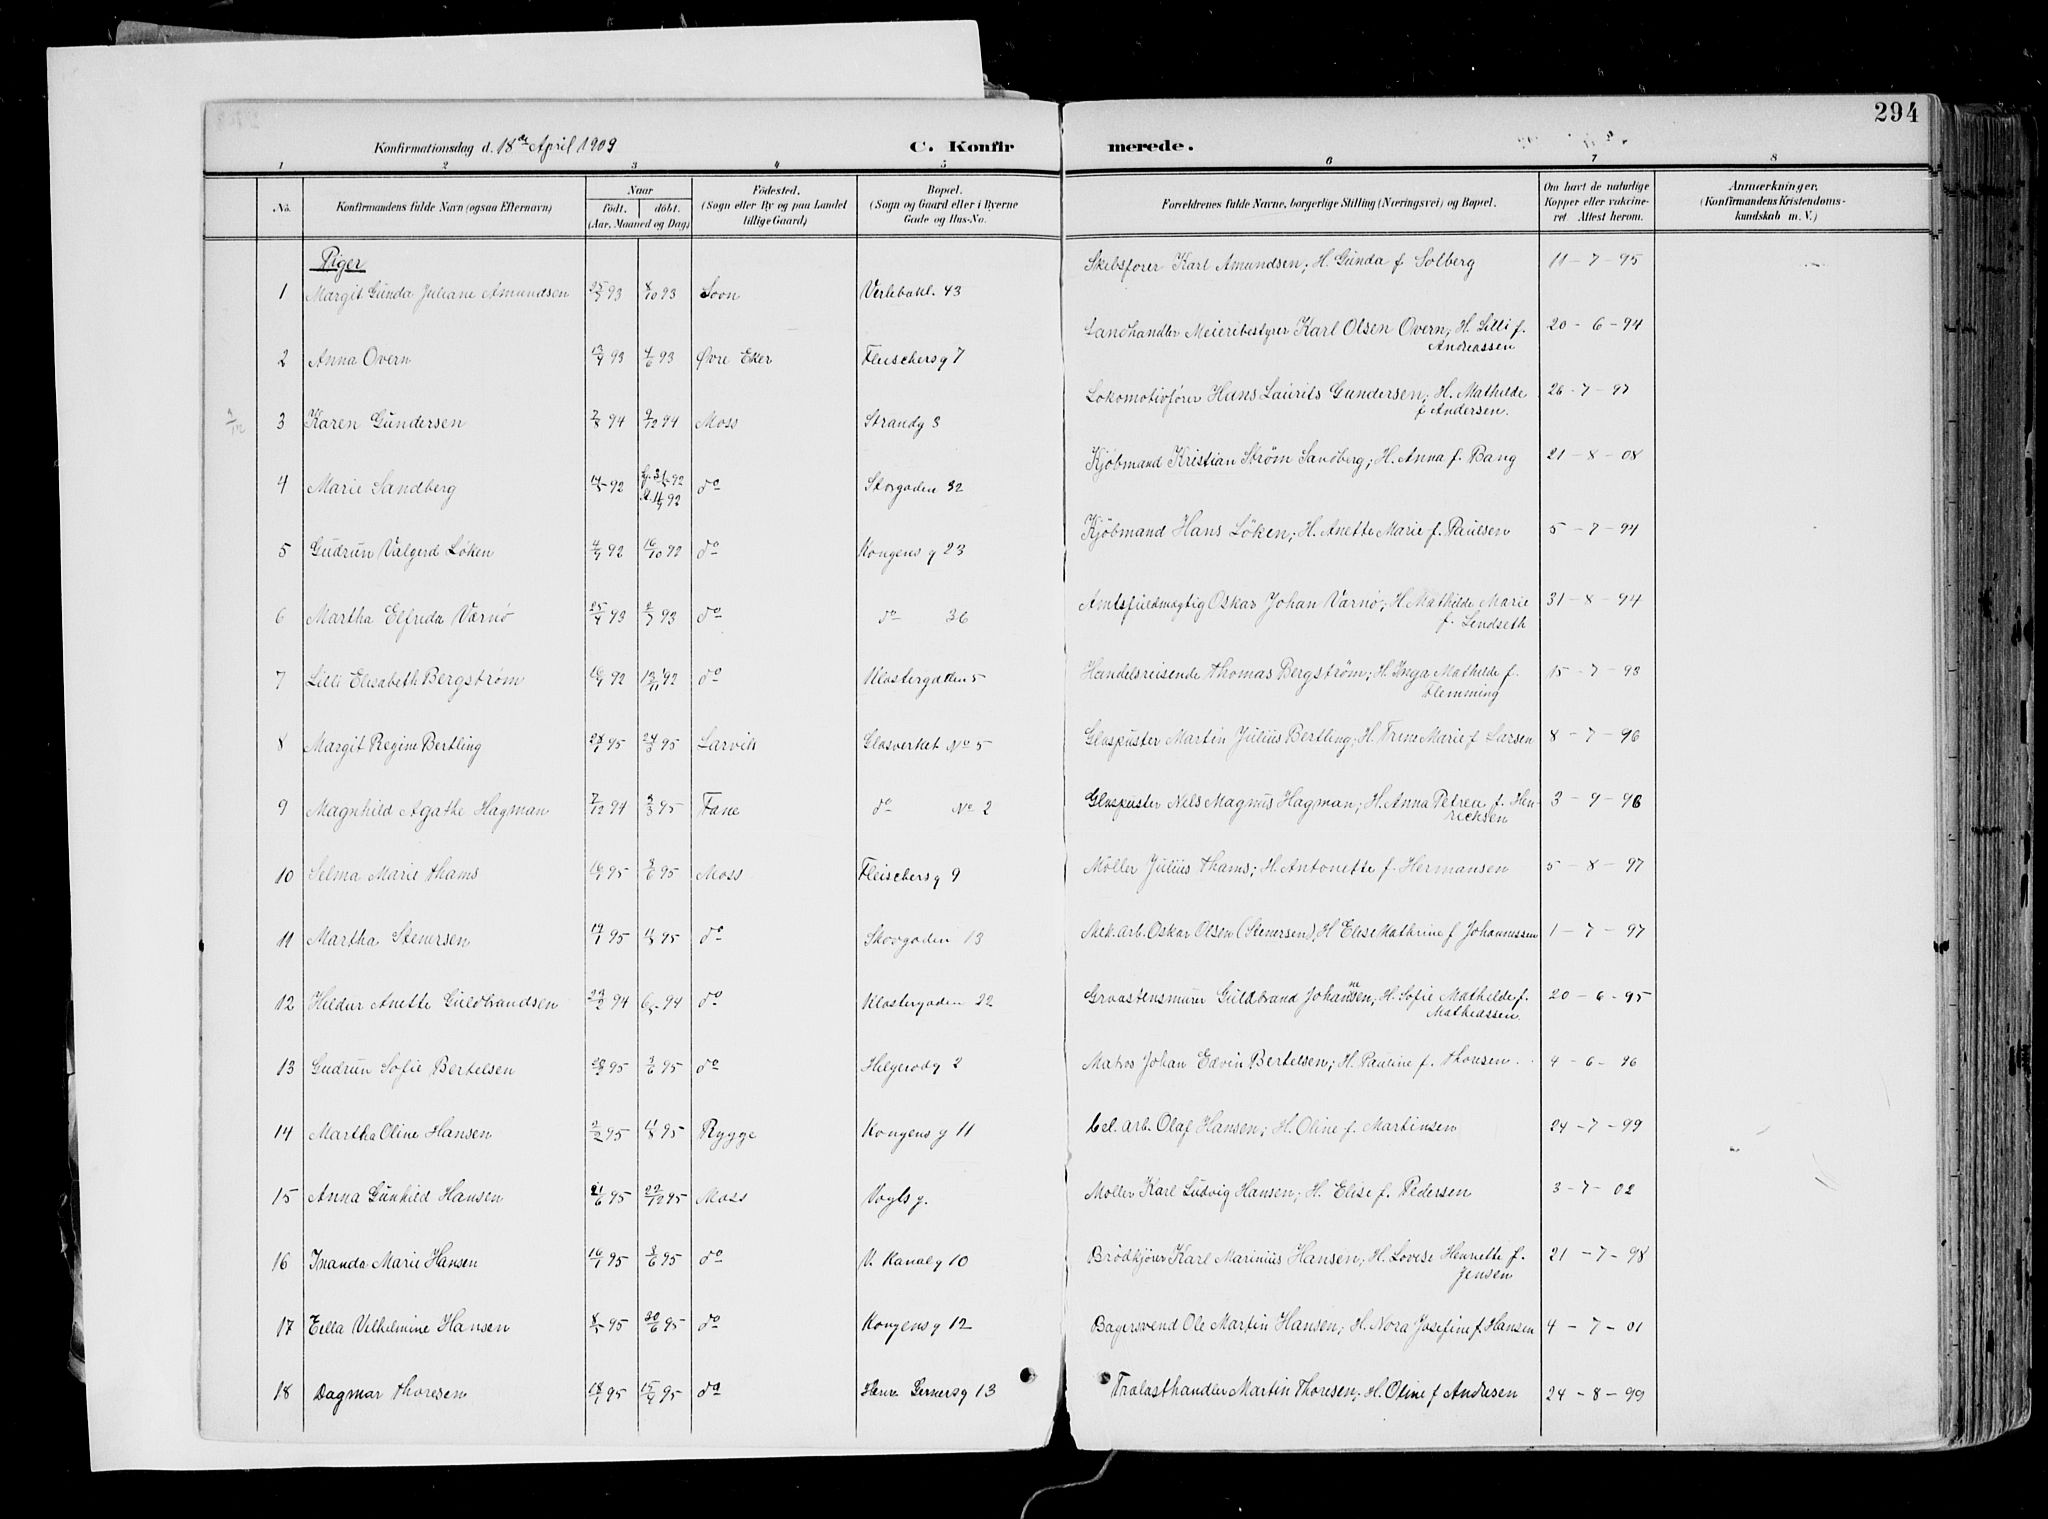 294
Konfirmationsdag d. 18de April 1909 C. Konfirmerede.
1 2 3 4 5 6 7 8
No. Konfirmandens fulde Navn (ogsaa Efternavn) Naar Født. døbt. (Aar, Maaned og Dag) Fødested. (Sogn eller By og paa Landet tillige Gaard) Bopæl. (Sogn og Gaard eller i Byerne Gade og Hus-No. Forældrenes fulde Navne, borgerlige Stilling (Næringsvei) og Bopæl. Om havt de naturlige Kopper eller vakcineret Attest herom. Anmærkninger, (Konfirmandens Kristendomskundskab m. V.)
Piger
1 Margit Gunda Juliane Amundsen 93 8/10 93 Soon Verlebakl. 43 Skibsfører Karl Amundsen; H. Gunda f Solberg 11-7-95
2 Anna Overn 93 4/6 93 Øvre Eker Fleischersg 7 Landhandler Meieribestyrer Karl Olsen Overn; H. Lilli f. Andreassen 20-6-94
3 Karen Gundersen 94 9/12 94 Moss Strandg 3 Lokomotivfører Hans Laurits Gundersen; H. Mathilde f Andersen. 26-7-97
4 Marie Sandberg 92 do Storgaden 32 Kjøbmand Kristian Strøm Sandberg; H. Anna f. Bang 21-8-08
5 Gudrun Valgerd Løken 92 16/10 92 do Kongens g 23 Kjøbmand Hans Løken; H. Anette Marie f. Paulsen 5-7-94
6 Martha Elfreda Varnø 93 2/7 93 do do 36 Amtsfuldmægtig Oskar Johan Varnø; H. Mathilde Marie f. Lindseth 31-8-94
7 Lilli Elisabeth Bergstrøm 92 13/11 92 do Klostergaden 5 Handelsreisende Thomas Bergstrøm; H. Inga Mathilde f. Flemming 15-7-93
8 Margit Regine Bertling 95 24/3 95 Larvik Glasverket No 5 Glaspuster Martin Julius Bertling; H. Trine Marie f Larsen 8-7-96
9 Magnhild Agathe Hagman 7/12 94 3/3 95 Fane do No 2 Glaspuster Nils Magnus Hagman; H. Anna Petrea f. Henricksen 3-9-96
10 Selma Marie Thams 95 3/6 95 Moss Fleischersg 9 Møller Julius Thams; H. Antonette f. Hermansen 5-8-97
11 Martha Stenersen 19/1 95 95 do Skovgaden 13 Mek. Arb. Oskar Olsen (Stenersen); H Elise Mathrine f Johannessen 1-7-97
12 Hildur Anette Guldbrandsen 94 94 do Klostergaden 22 Graastensmurer Guldbrand Johannesen; H. Sofie Mathilde f. Mathiassen. 20-6-95
13 Gudrun Sofie Bertelsen 95 3/6 95 do Helgerødg 2 Matros Johan Edvin Bertelsen; H. Pauline f. Thoresen. 4-6-96
14 Martha Oline Hansen 95 11/8 95 Rygge Kongens g 11 Cel. arb. Olaf Hansen; H. Oline f. Martinsen 24-7-99
15 Anna Gunhild Hansen 21/6 95 22/12 95 Moss Vogts g. Møller Karl Ludvig Hansen; H. Elise f. Pedersen 3-7-02
16 Inanda Marie Hansen 95 3/6 95 do V. Kanalg 10 Brødkjører Karl Marinius Hansen; H. Lovise Henriette f. Jensen 21-7-98
17 Ella Vilhelmine Hansen 95 30/6 95 do Kongens g 12 Bagersvend Ole Martin Hansen; H. Nora Josefine f. Hansen 4-7-01
18 Dagmar Thoresen 95 95 do Henr. Gernersg 13 Trælasthandler Martin Thoresen; H. Oline f Andresen 24-8-99